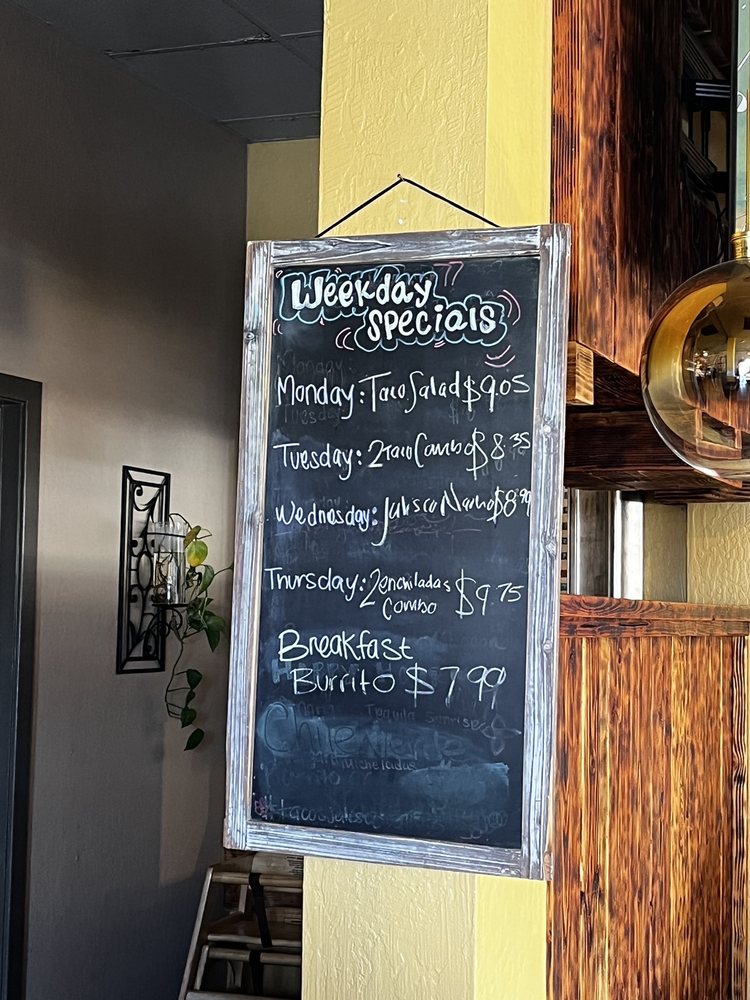 Weekday
specials
Monday: Taco Salad $9.05
Tuesday: 2 Taco Combo $8.35
Wednesday: Jalisco Nacho $8.99
Thursday: 2 enchiladas $9.75
Combo
Breakfast
Burrito $7.99
Tequila Sunrise
Chile Verde
Micheladas
#tacosjalisco